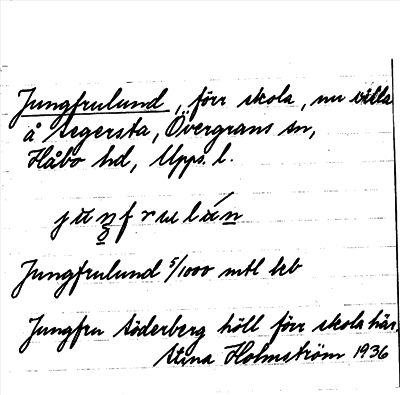 Jungfrulund, förr skola, nu villa
å Segersta, Övergrans sn,
Håbo hd, Upps. l.
Jungfrulund 5/1000 mtl krb
Jungfru Söderberg höll förr skola här.
Stina Holmström 1936